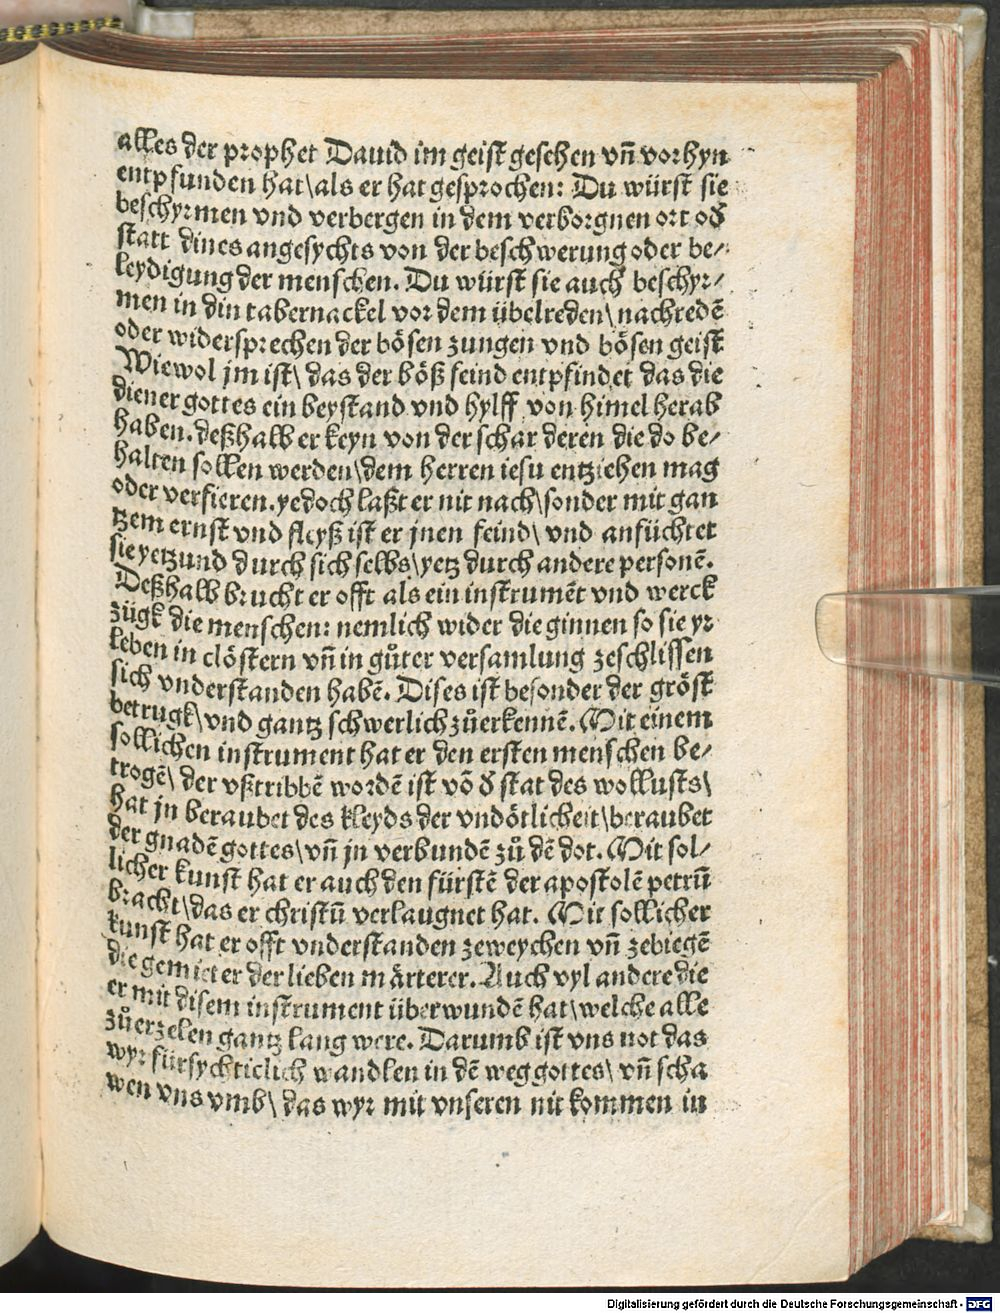 alles der prophet Dauid im geist gesehen vn̄ vorhyn
entpfunden hat\als er hat gesprochen: Du würst sie
beschyrmen vnd verbergen in dem verborgnen ort oď
statt dines angesychts von der beschwerung oder be⸗
leydigung der menschen. Du würst sie auch beschyr⸗
men in din tabernackel vor dem übelreden\ nachredē
oder widersprechen der bösen zungen vnd bösen geist
Wiewol jm ist\ das der böß feind entpfindet das die
diener gottes ein beystand vnd hylff von himel herab
haben. deßhalb er keyn von der schar deren die do be⸗
halten sollen werden\dem herren iesu entziehen mag
oder verfieren. yedoch laßt er nit nach\sonder mit gan
tzem ernst vnd fleyß ist er jnen feind\ vnd anfüchtet
sie yetzund durch sich selbs\yetz durch andere personē.
Deßhalb brucht er offt als ein instrumēt vnd werck
zügk die menschen: nemlich wider die ginnen so sie yr
leben in clöstern vn̄ in gůter versamlung zeschlissen
sich vnderstanden habē. Dises ist besonder der gröst
betrugk\vnd gantz schwerlich zůerkennē. Mit einem
sollichen instrument hat er den ersten menschen be⸗
trogē\ der vßtribbē wordē ist vō ď stat des wollusts\
hat jn beraubet des kleyds der vndötlicheit\beraubet
der gnadē gottes\vn̄ jn verbundē zů dē dot. Mit sol⸗
licher kunst hat er auch den fürstē der apostolē petrū
bracht\das er christū verlaugnet hat. Mit sollicher
kunst hat er offt vnderstanden zeweychen vn̄ zebiegē
die gemieter der lieben märterer. Auch vyl andere die
er mit disem instrument überwundē hat\welche alle
zůerzelen gantz lang were. Darumb ist vns not das
wyr fürsychticlich wandlen in dē weg gottes\ vn̄ scha
wen vns vmb\ das wyr mit vnseren nit kommen in
Digitalisierung gefördert durch die Deutsche Forschungsgemeinschaft - DFG